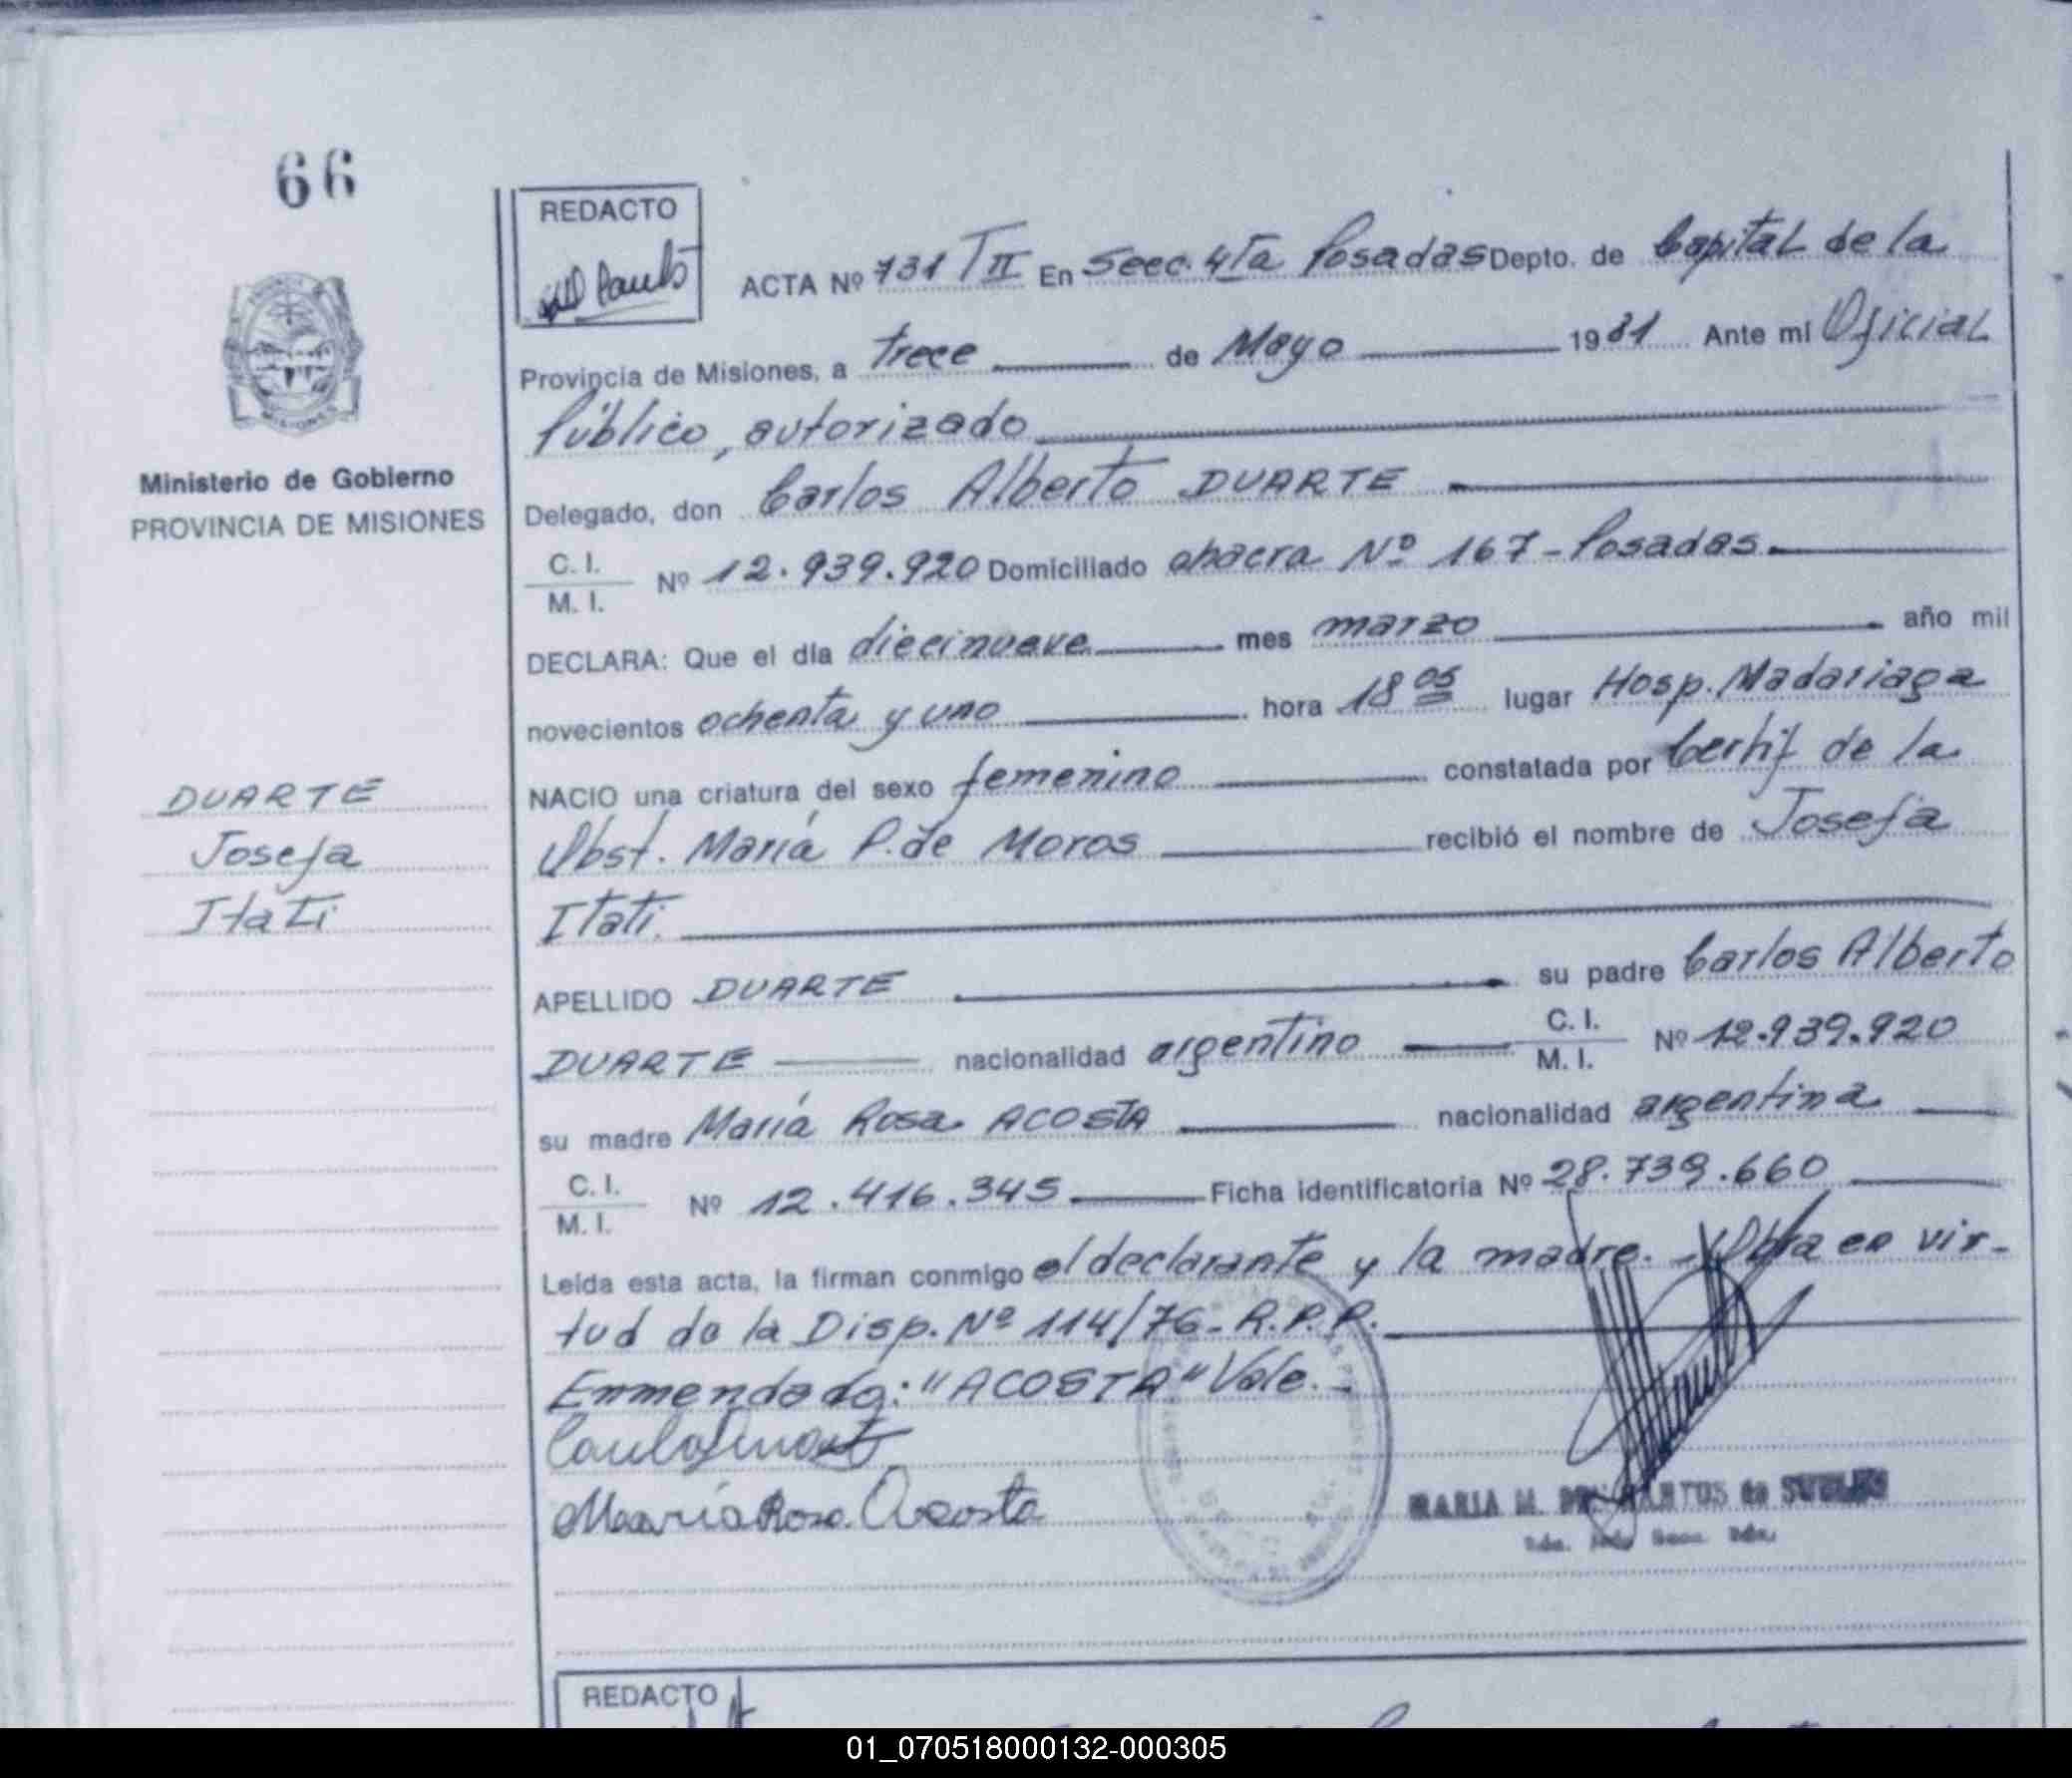 66
REDACTO
ACTA Nº 731 T II En Secc. 4ta Posadas Depto. de Capital de la
Provincia de Misiones, a trece de Mayo 1981 Ante mí Oficial
Público, autorizado
Ministerio de Gobierno
PROVINCIA DE MISIONES
Delegado, don Carlos Alberto DUARTE
C. I.
M. I. Nº 12.939.920 Domiciliado chacra Nº 167 - Posadas.
DECLARA: Que el día diecinueve mes marzo año mil
novecientos ochenta y uno hora 18 05 lugar Hosp. Madariaga
NACIO una criatura del sexo femenino constatada por Certif de la
Obst. María P. de Moros recibió el nombre de Josefa
Itati.
DUARTE
Josefa
Itati
APELLIDO DUARTE su padre Carlos Alberto
DUARTE nacionalidad argentino C. I. M. I. Nº 12.939.920
su madre María Rosa ACOSTA nacionalidad argentina
C. I.
M. I. Nº 12.416.345 Ficha identificatoria Nº 28.739.660
Leída esta acta, la firman conmigo el declarante y la madre. - Obra en vir-
tud de la Disp. Nº 114/76 - R.P.P.
Enmendado: "ACOSTA" Vale. -
María Rosa Acosta
MARIA M. de
REDACTO
01_070518000132-000305